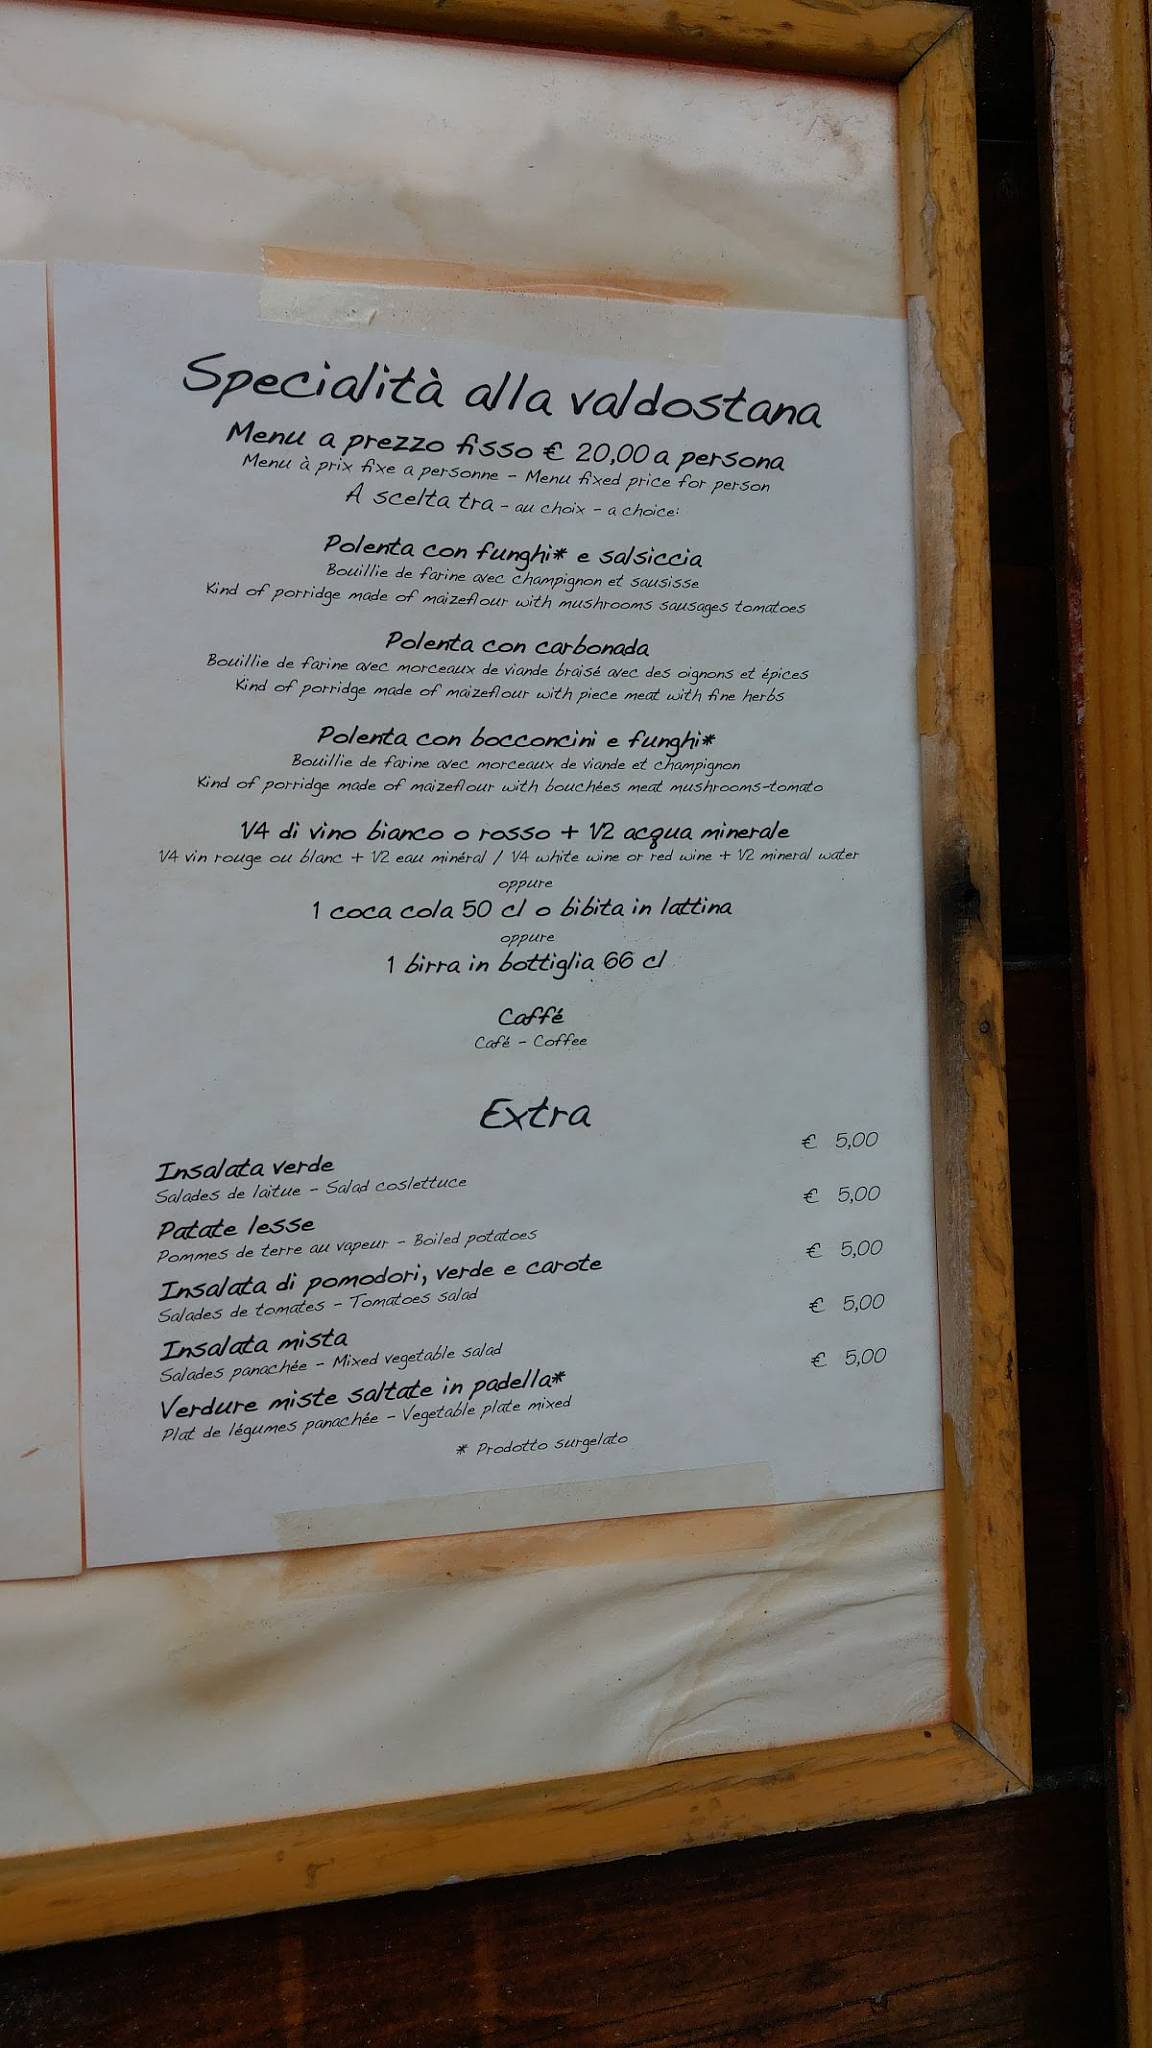 Specialità alla valdostana
Menu a prezzo fisso € 20,00 a persona
Menu à prix fixe a personne - Menu fixed price for person
A scelta tra - au choix - a choice:
Polenta con funghi* e salsiccia
Bouillie de farine avec champignon et sausisse
Kind of porridge made of maizeflour with mushrooms sausages tomatoes
Polenta con carbonada
Bouillie de farine avec morceaux de viande braisé avec des oignons et épices
Kind of porridge made of maizeflour with piece meat with fine herbs
Polenta con bocconcini e funghi*
Bouillie de farine avec morceaux de viande et champignon
Kind of porridge made of maizeflour with bouchées meat mushrooms-tomato
1/4 di vino bianco o rosso + 1/2 acqua minerale
1/4 vin rouge ou blanc + 1/2 eau minéral / 1/4 white wine or red wine + 1/2 mineral water
oppure
1 coca cola 50 cl o bibita in lattina
oppure
1 birra in bottiglia 66 cl
Caffé
Café - Coffee
Extra
Insalata verde € 5,00
Salades de laitue - Salad coslettuce
Patate lesse € 5,00
Pommes de terre au vapeur - Boiled potatoes
Insalata di pomodori, verde e carote € 5,00
Salades de tomates - Tomatoes salad
Insalata mista € 5,00
Salades panachée - Mixed vegetable salad
Verdure miste saltate in padella* € 5,00
Plat de légumes panachée - Vegetable plate mixed
* Prodotto surgelato